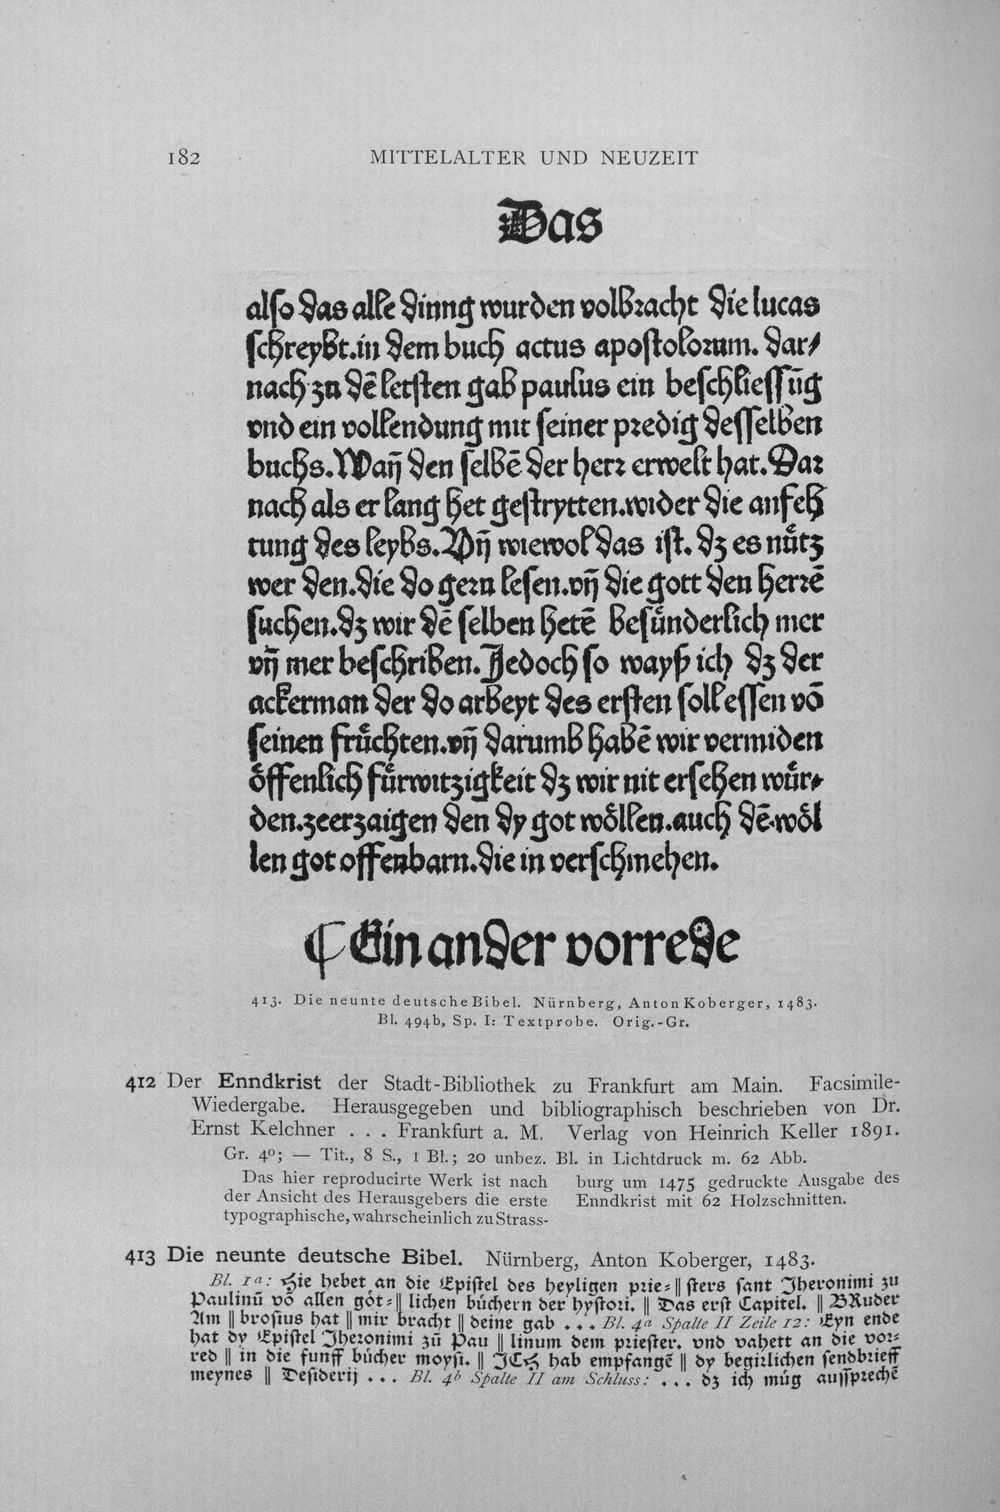 182 MITTELALTER UND NEUZEIT
Das
also das alle dinng wurden volbracht die lucas
schreybt.in dem buch actus apostolorum. dar/
nach zu dē letsten gab paulus ein beschliessūg
vnd ein vollendung mit seiner predig desselben
buchs.Wañ den selbē der herr erwelt hat.Dar
nach als er lang het gestrytten.wider die anfeh
tung des leybs.Vñ wiewol das ist. dz es nütz
wer den.die do gern lesen.vñ die gott den herrē
suchen.dz wir dē selben hetē besünderlich mer
vñ mer beschriben.Jedoch so wayß ich dz der
ackerman der do arbeyt des ersten soll essen vō
seinen früchten.vñ darumb habē wir vermiden
öffenlich fürwitzigkeit dz wir nit ersehen wür/
den.zeerzaigen den dy got wöllen.auch dē.wöl
len got offenbarn.die in verschmehen.
⸿ Ein ander vorrede
413. Die neunte deutsche Bibel. Nürnberg, Anton Koberger, 1483.
Bl. 494b, Sp. I: Textprobe. Orig.-Gr.
412 Der Enndkrist der Stadt-Bibliothek zu Frankfurt am Main. Facsimile-
Wiedergabe. Herausgegeben und bibliographisch beschrieben von Dr.
Ernst Kelchner . . . Frankfurt a. M. Verlag von Heinrich Keller 1891.
Gr. 4º; — Tit., 8 S., 1 Bl.; 20 unbez. Bl. in Lichtdruck m. 62 Abb.
Das hier reproducirte Werk ist nach
der Ansicht des Herausgebers die erste
typographische, wahrscheinlich zu Strass-
burg um 1475 gedruckte Ausgabe des
Enndkrist mit 62 Holzschnitten.
413 Die neunte deutsche Bibel. Nürnberg, Anton Koberger, 1483.
Bl. 1a: Hie hebet an die Epistel des heyligen prie⸗ ‖ sters sant Jheronimi zu
Paulinū vō allen göt⸗ ‖ lichen büchern der hystori. ‖ Das erst Capitel. ‖ BRuder
Am ‖ brosius hat ‖ mir bracht ‖ deine gab . . . Bl. 4a Spalte II Zeile 12: Eyn ende
hat dy Epistel Jheronimi zū Pau ‖ linum dem priester. vnd vahett an die vor⸗
red ‖ in die funff bücher moysi. ‖ JCH hab empfangē ‖ dy begirlichen sendbrieff
meynes ‖ Desiderij . . . Bl. 4b Spalte II am Schluss: . . . dz ich müg aussprechē